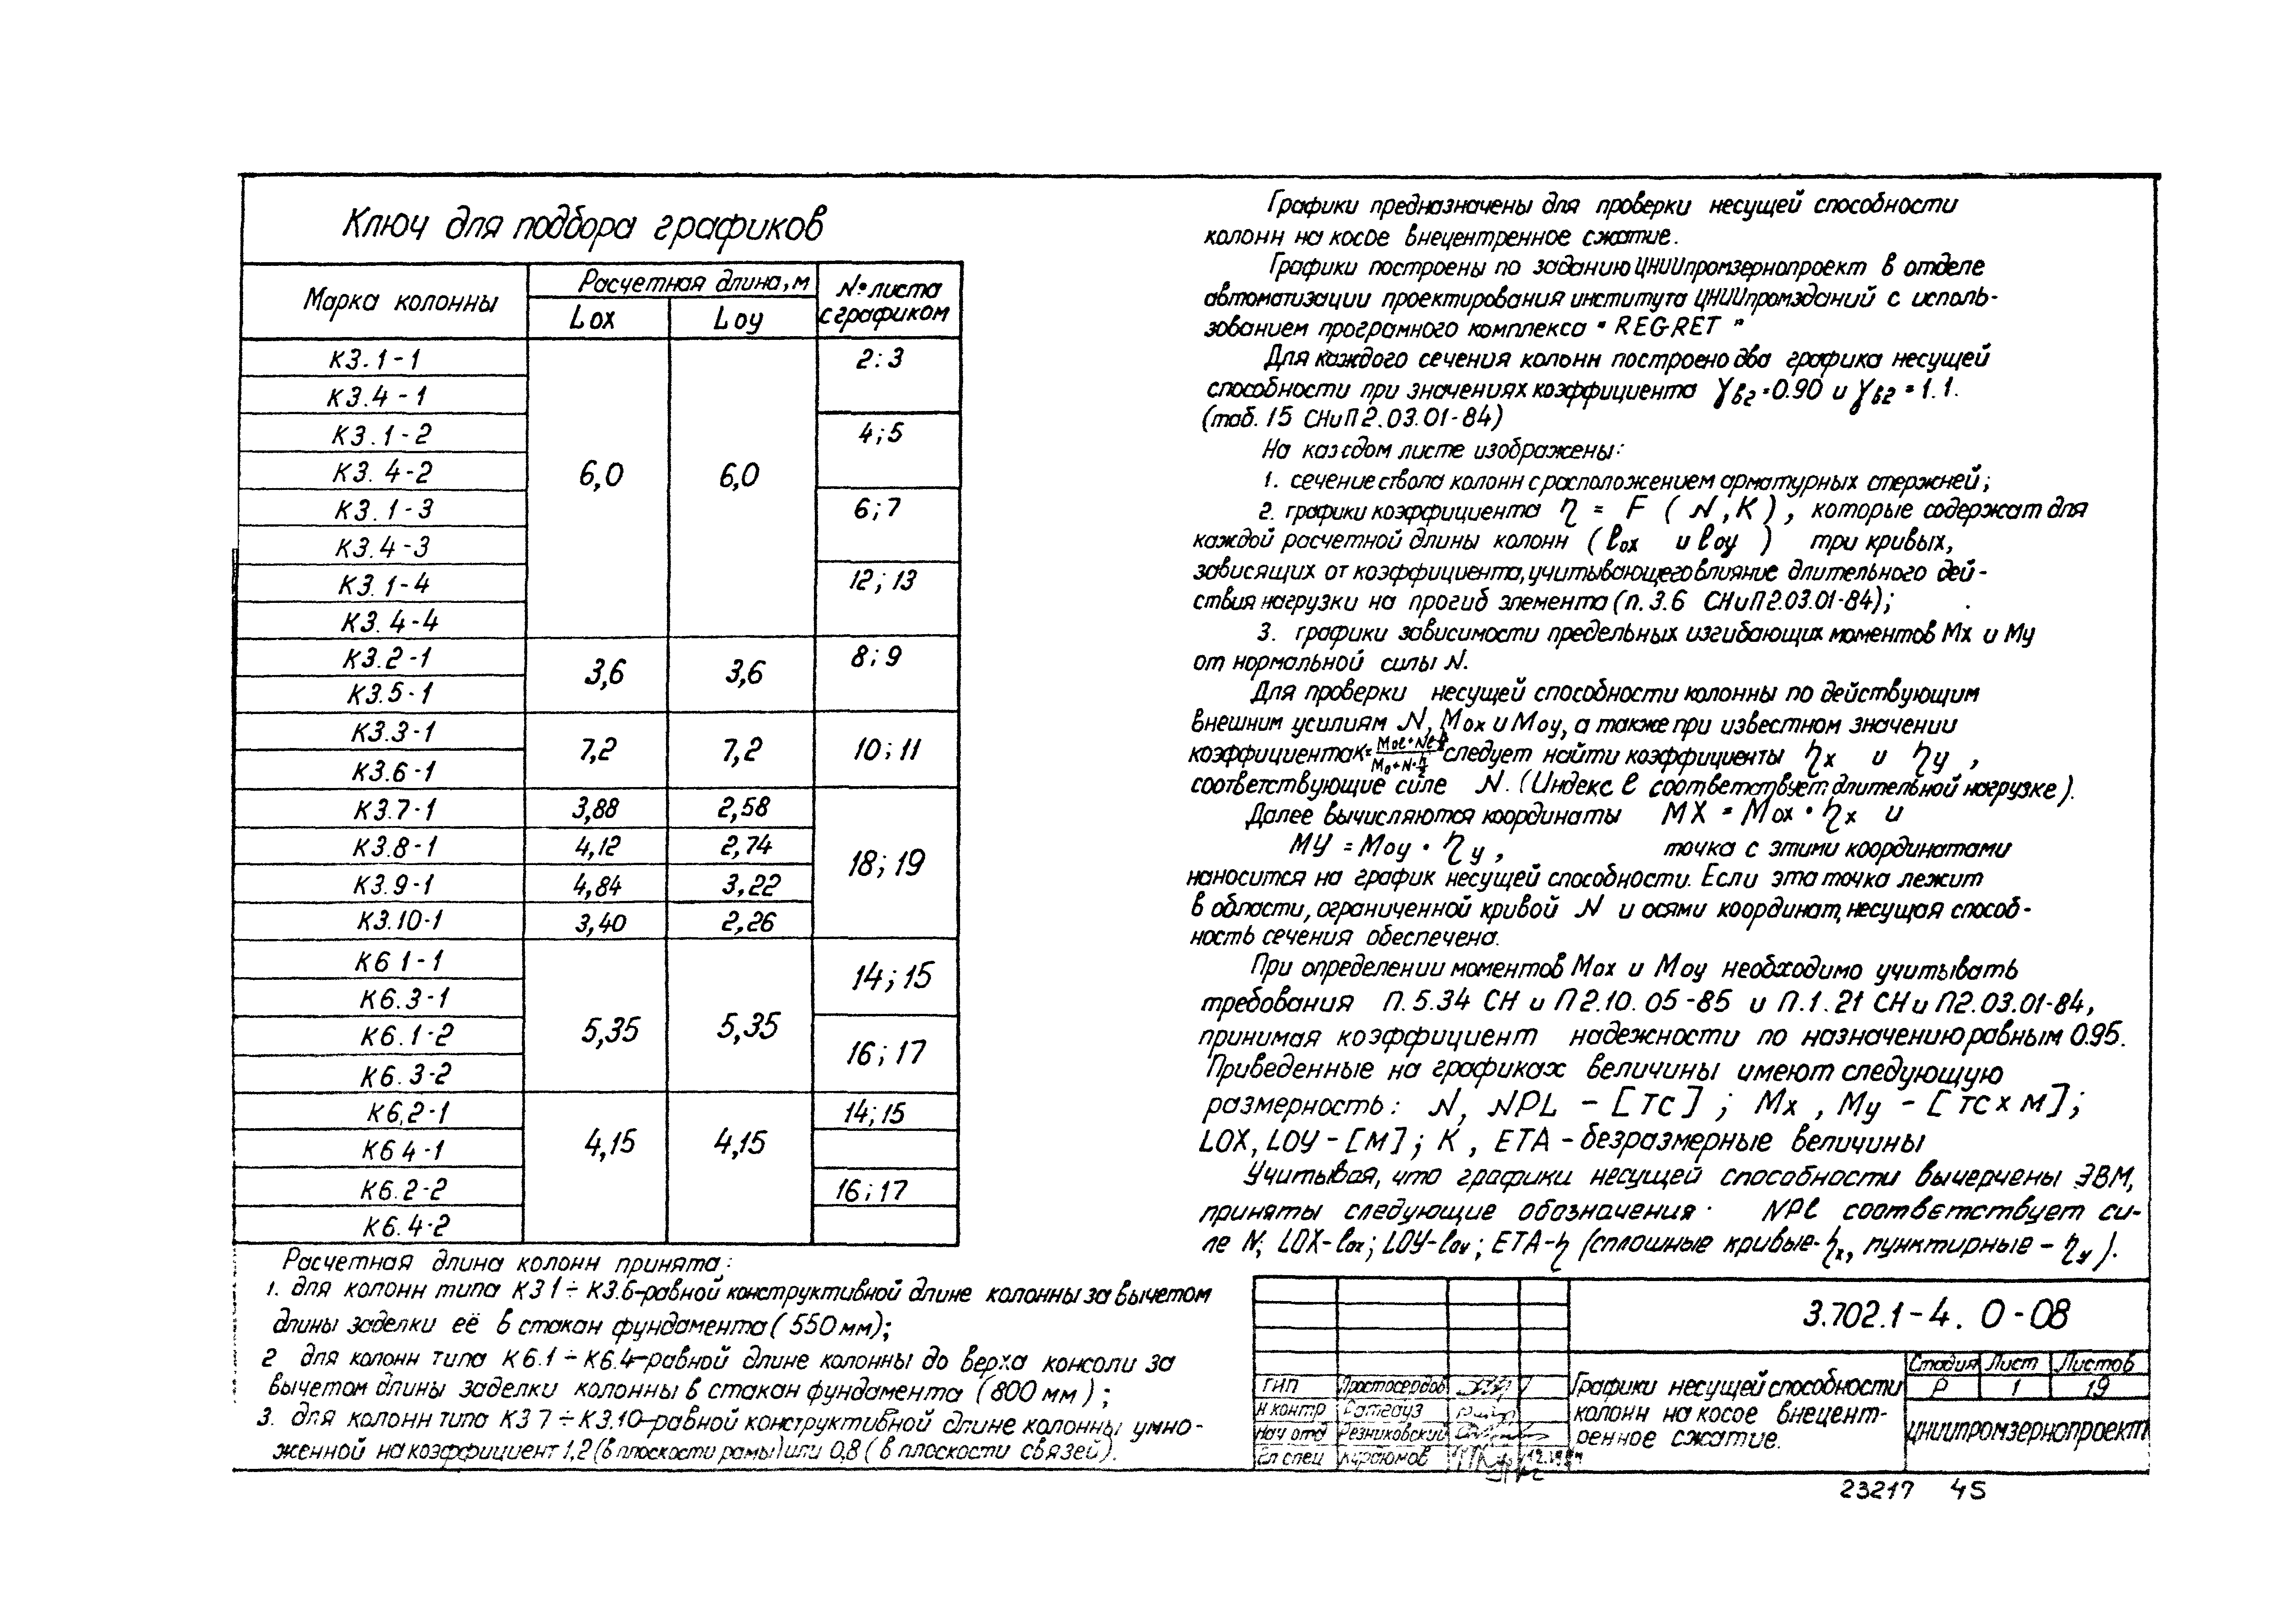 Ключ для подбора графиков
Марка колонны
Расчетная длина, м
№ листа
с графиком
Lox
Loy
К3.1-1
2:3
К3.4-1
К3.1-2
4;5
К3.4-2
6,0
6,0
К3.1-3
6;7
К3.4-3
К3.1-4
12; 13
К3.4-4
К3.2-1
3,6
3,6
8;9
К3.5-1
К3.3-1
7,2
7,2
10;11
К3.6-1
К3.7-1
3,88
2,58
К3.8-1
4,12
2,74
18;19
К3.9-1
4,84
3,22
К3.10-1
3,40
2,26
К6 1-1
14;15
К6.3-1
5,35
5,35
К6.1-2
16;17
К6.3-2
К6,2-1
14;15
К6 4-1
4,15
4,15
К6.2-2
16;17
К6.4-2
Расчетная длина колонн принята:
1. для колонн типа К3 1÷К3.6-равной конструктивной длине колонны за вычетом
длины заделки её в стакан фундамента (550 мм);
2 для колонн типа К6.1÷К6.4-равной длине колонны до верха консоли за
вычетом длины заделки колонны в стакан фундамента (800 мм);
3. для колонн типа К3 7÷К3.10-равной конструктивной длине колонны умно-
женной на коэффициент 1,2 (в плоскости рамы) или 0,8 (в плоскости связей).
Графики предназначены для проверки несущей способности
колонн на косое внецентренное сжатие.
Графики построены по заданию ЦНИИпромзернопроект в отделе
автоматизации проектирования института ЦНИИпромзданий с исполь-
зованием програмного комплекса "REGRET"
Для каждого сечения колонн построено два графика несущей
способности при значениях коэффициента γв2=0.90 и γв2=1.1.
(таб. 15 СНиП 2.03.01-84)
На каждом листе изображены:
1. сечение ствола колонн с расположением арматурных стержней;
2. графики коэффициента η = F (N,K), которые содержат для
каждой расчетной длины колонн (lox и loy) три кривых,
зависящих от коэффициента, учитывающего влияние длительного дей-
ствия нагрузки на прогиб элемента (п. 3.6 СНиП 2.03.01-84);
3. графики зависимости предельных изгибающих моментов Мх и Му
от нормальной силы N.
Для проверки несущей способности колонны по действующим
внешним усилиям N, Мох и Моу, а также при известном значении
коэффициента К= следует найти коэффициенты ηх и ηу,
соответствующие силе N. (Индекс ℓ соответствует длительной нагрузке).
Далее вычисляются координаты МХ = Мох • ηх и
МУ = Моу • ηу, точка с этими координатами
наносится на график несущей способности. Если эта точка лежит
в области, ограниченной кривой N и осями координат, несущая способ-
ность сечения обеспечена.
При определении моментов Мох и Моу необходимо учитывать
требования П.5.34 СНиП 2.10.05-85 и П.1.21 СНиП2.03.01-84,
принимая коэффициент надежности по назначению равным 0.95.
Приведенные на графиках величины имеют следующую
размерность: N, NPL - [ТС]; Мх, Му - [ТС х М];
LOX, LOY - [М]; К, ETA - безразмерные величины
Учитывая, что графики несущей способности вычерчены ЭВМ,
приняты следующие обозначения. NPℓ соответствует си-
ле N; LOX-lox; LOY-loy; ETA-η (сплошные кривые-ηх, пунктирные - ηу).
3.702.1-4. 0-08
Стадия Лист Листов
Р 1 19
Графики несущей способности
колонн на косое внецент-
ренное сжатие.
ЦНИИПРОМЗЕРНОПРОЕКТ
ГИП Простосердов
Н контр Ратгауз
Нач отд Резниковский
Гл спец
23217 45